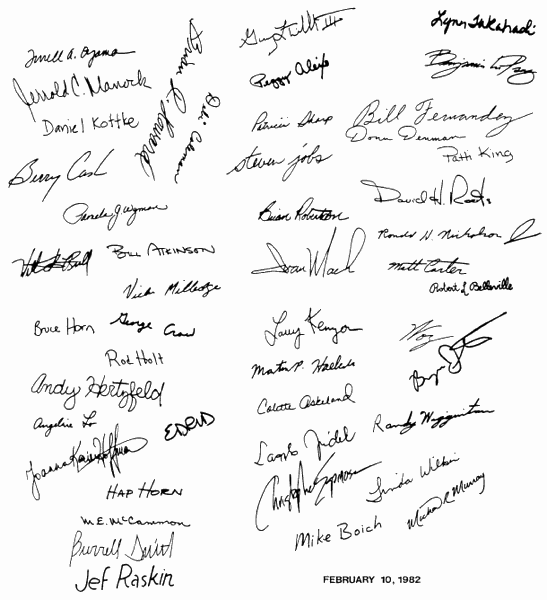 Terrell A. Oyama
Jerrold C. Manock
Daniel Kottke
Brian R. Howard
Debi Coleman
Berry Cash
Pamela G Wyman
BILL ATKINSON
Vicki Milledge
Bruce Horn
George Crow
Rod Holt
Andy Hertzfeld
Angeline Lo
Joanna Karine Hoffman
HAP HORN
M.E. McCammon
Burrell Smith
Jef Raskin
Peggy Alexio
Patricia Sharp
steven jobs
Brian Robertson
Ivan Mach
Larry Kenyon
Martin P. Haeberli
Colette Askeland
Laszlo Zidek
Christopher Espinosa
Mike Boich
Lynn Takahashi
Benjamin W Pang
Bill Fernandez
Donn Denman
Patti King
David H. Roots
Ronald H. Nicholson Jr
Matt Carter
Robert L Belleville
Woz
Randy Wigginton
Linda Wilkin
Michael R. Murray
FEBRUARY 10, 1982